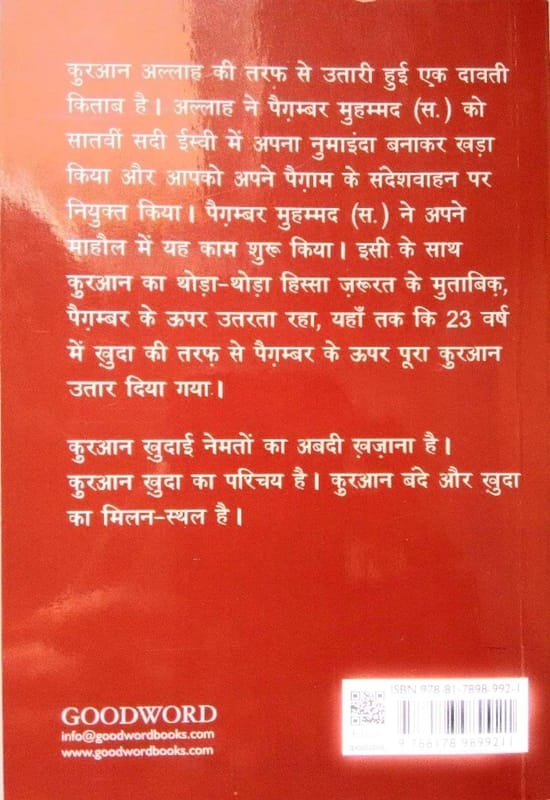 क़ुरआन अल्लाह की तरफ़ से उतारी हुई एक दावती
किताब है। अल्लाह ने पैग़म्बर मुहम्मद (स.) को
सातवीं सदी ईस्वी में अपना नुमाइंदा बनाकर खड़ा
किया और आपको अपने पैग़ाम के संदेशवाहन पर
नियुक्त किया। पैग़म्बर मुहम्मद (स.) ने अपने
माहौल में यह काम शुरू किया। इसी के साथ
क़ुरआन का थोड़ा-थोड़ा हिस्सा ज़रूरत के मुताबिक़,
पैग़म्बर के ऊपर उतरता रहा, यहाँ तक कि 23 वर्ष
में ख़ुदा की तरफ़ से पैग़म्बर के ऊपर पूरा क़ुरआन
उतार दिया गया।
क़ुरआन ख़ुदाई नेमतों का अबदी ख़ज़ाना है।
क़ुरआन ख़ुदा का परिचय है। क़ुरआन बंदे और ख़ुदा
का मिलन-स्थल है।
ISBN 978-81-7898-992-1
GOODWORD
info@goodwordbooks.com
www.goodwordbooks.com